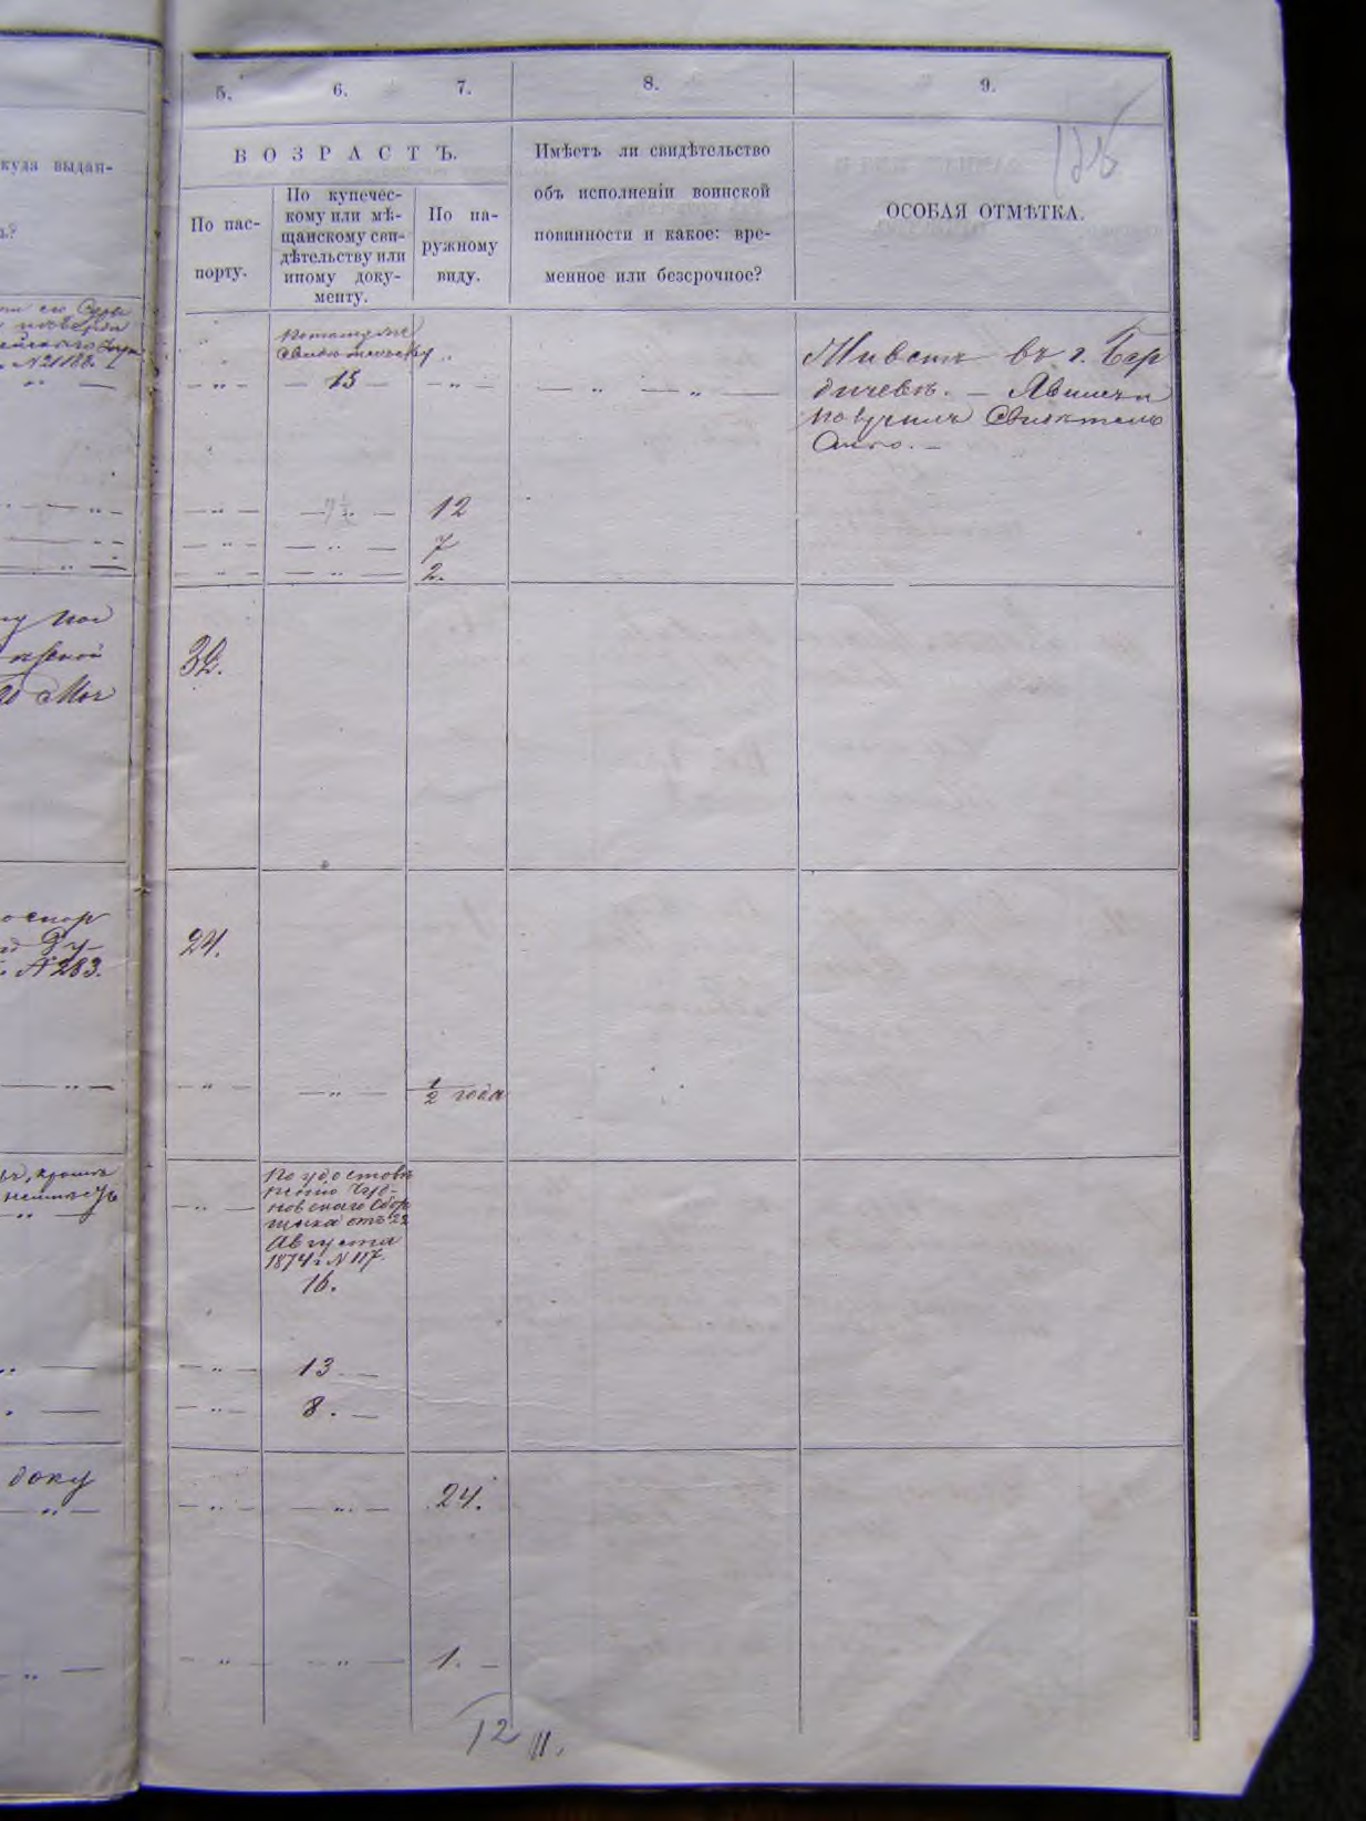 куда выдан-
ъ?
№ 21188.
5. 6. 7. 8. 9.
ВОЗРАСТЪ.
По пас-
порту.
По купечес-
кому или мѣ-
щанскому сви-
дѣтельству или
иному доку-
менту.
По на-
ружному
виду.
Имѣетъ ли свидѣтельство
объ исполненіи воинской
повинности и какое: вре-
менное или безсрочное?
ОСОБАЯ ОТМѢТКА.
свидѣтельству
— „ — — 15 — — „ — — „ — „ —
Живетъ въ г. Бер
дичевѣ. —
получилъ Свидѣтель
ство. —
— „ — — „ — 12
— „ — — „ — 7
— „ — — „ — 2.
32.
№ 283.
24.
— „ — — „ — 1/2 года
кромѣ
По удостовѣ
ренію Чуд-
новскаго Сбор
щика отъ 22
Августа
1874 г. № 117.
— „ — 16.
— „ — 13 —
— „ — 8. —
доку
— „ — — „ — 24.
— „ — — „ — 1. —
12